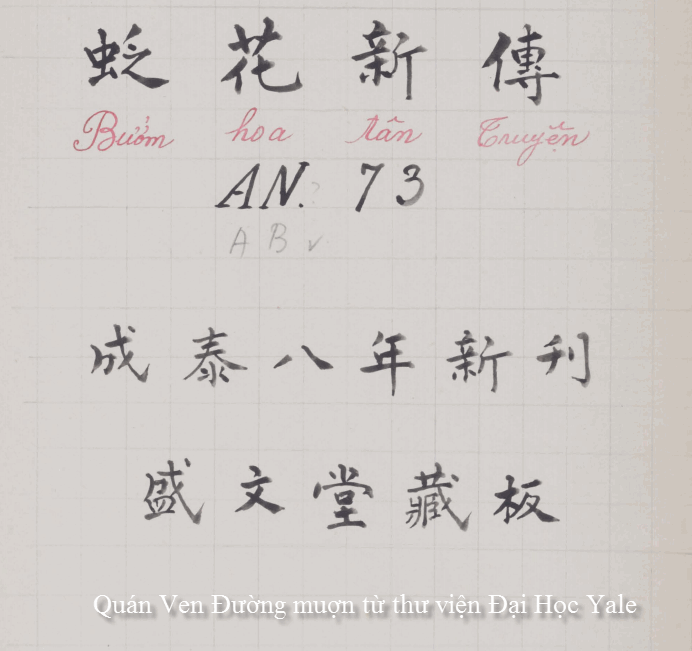 䖝花新傳
Bướm hoa tân Truyện
AN. 73
A B v
成泰八年新刊
盛文堂藏板
Quán Ven Đường mượn từ thư viện Đại Học Yale